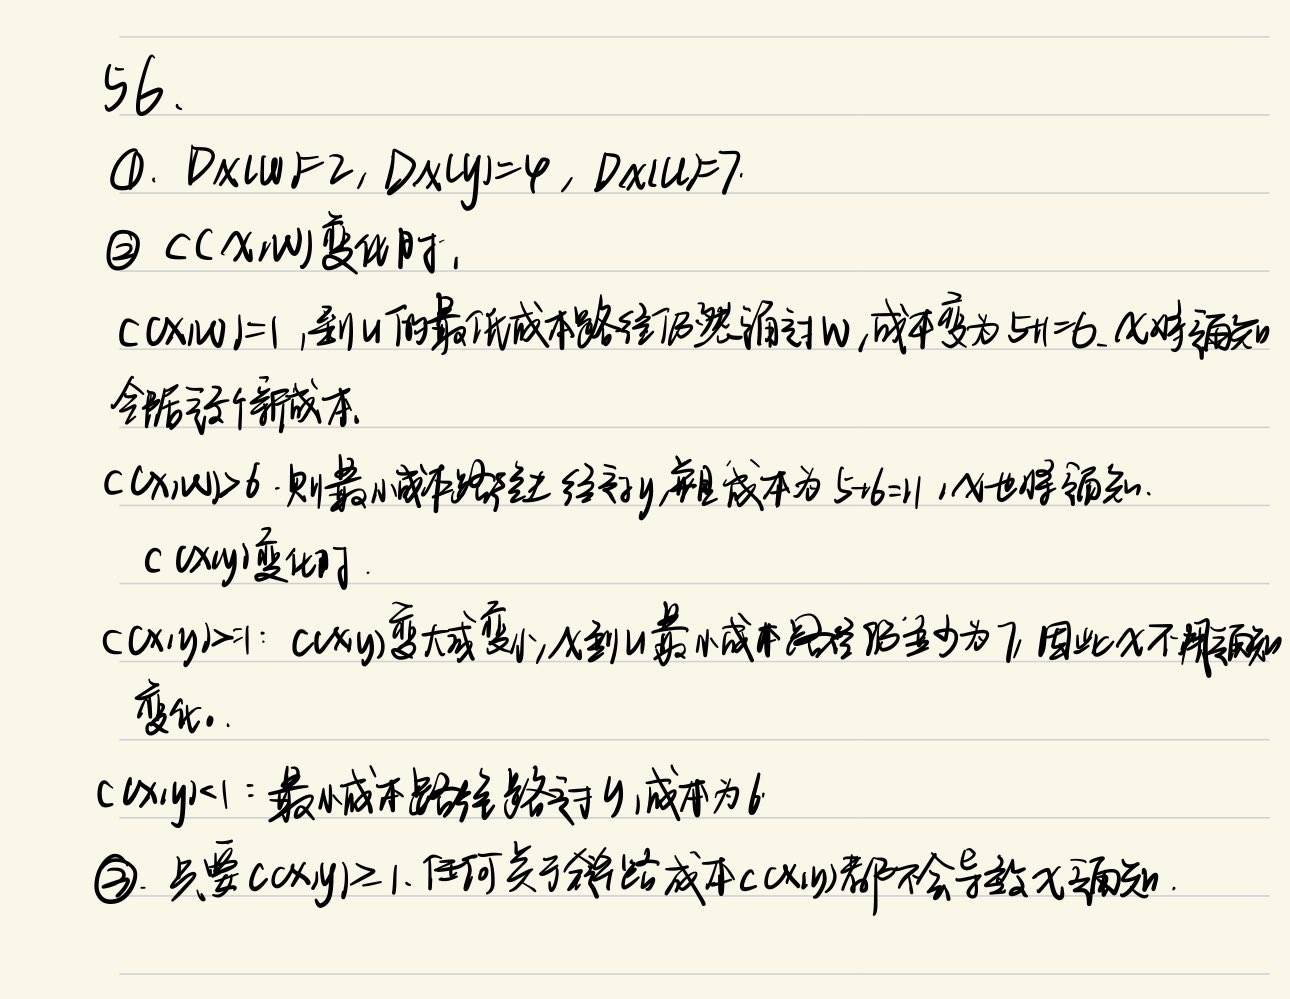 56.
①. Dx(w)=2, Dx(y)=4, Dx(u)=7.
② C(x,w)变化时,
C(x,w)=1,到u的最低成本路径仍然通过w,成本变为5+1=6. x将通知
邻居这个新成本.
C(x,w)>6.则最小成本路径 经过y,并且成本为5+6=11,x也将通知.
C(x,y)变化时.
C(x,y)>=1: C(x,y)变大或变小,x到u最小成本路径仍至少为7,因此x不用通知
变化。.
C(x,y)<1:最小成本路径 过y,成本为6.
③. 只要C(x,y)≥1.任何关于链路成本C(x,y)都不会导致x通知.